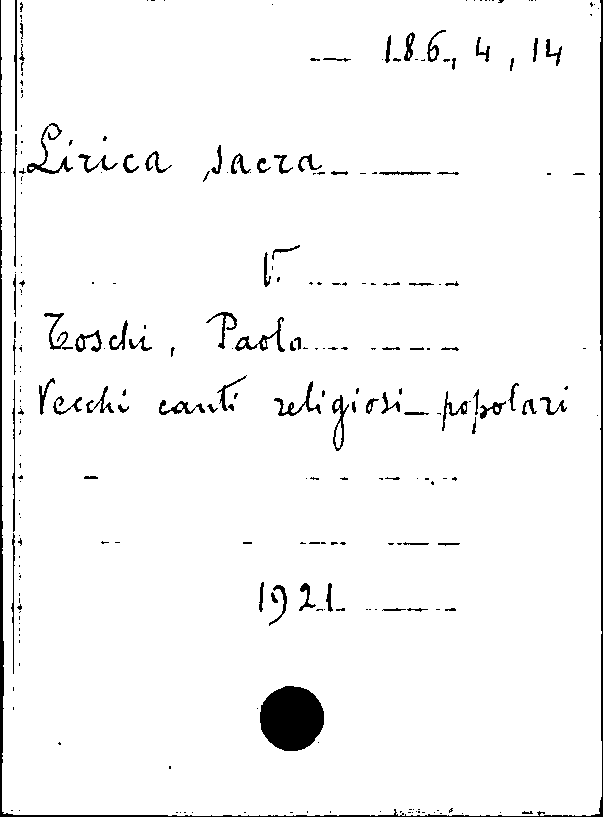 186, 4, 14
Lirica sacra
V.
Toschi, Paolo
Vecchi canti religiosi popolari
1921